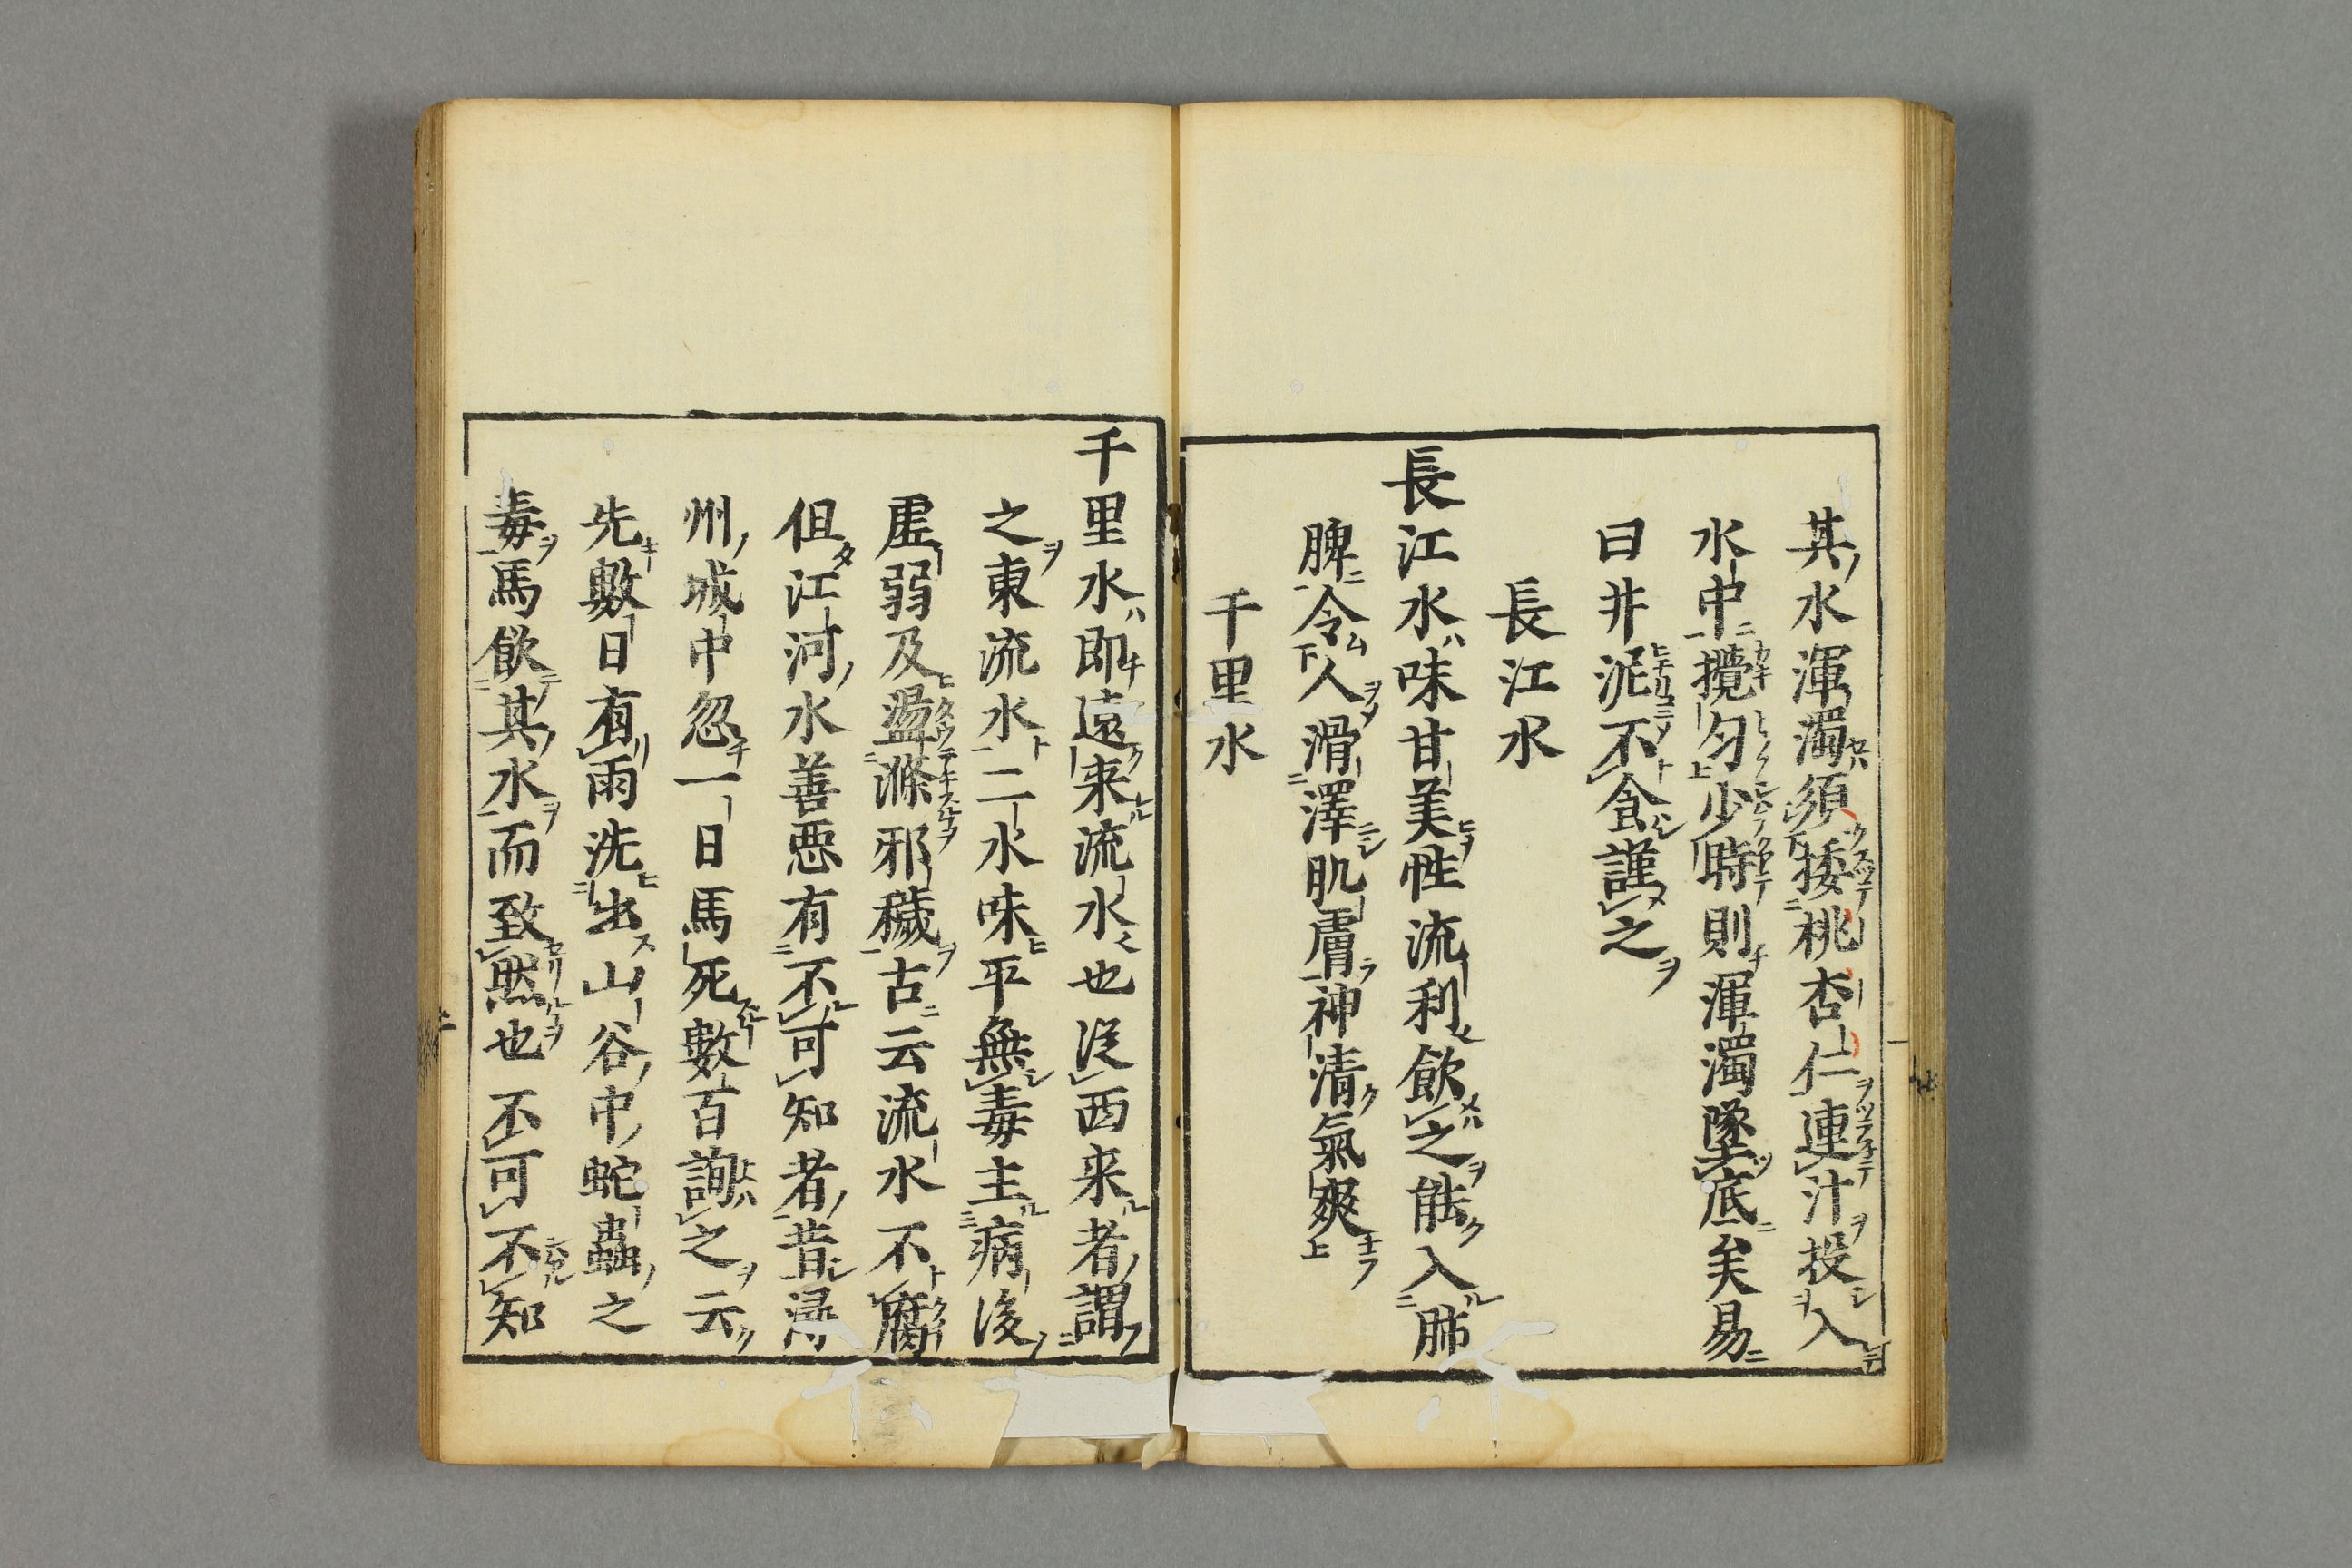 其水渾濁須挼桃杏仁連汁投入
水中攪匀少時則渾濁墜底矣易
曰井泥不食謹之
長江水
長江水味甘美性流利飲之能入肺
脾令人滑澤肌膚神清氣爽
千里水
千里水即遠来流水也従西来者謂
之東流水二水味平無毒主病後
虚弱及盪滌邪穢古云流水不腐
但江河水善悪有不可知者昔潯
州城中忽一日馬死數百詢之云
先數日有雨洗出山谷中蛇蟲之
毒馬飲其水而致然也不可不知